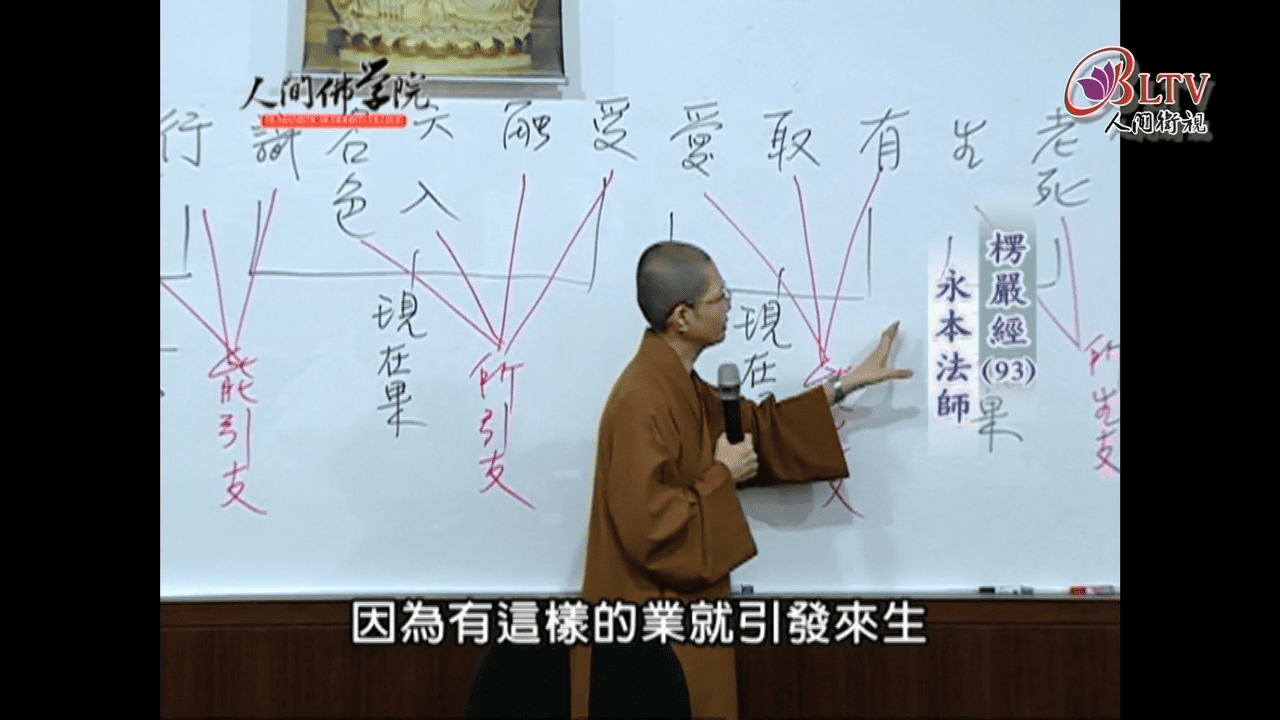 人間佛學院
BLTV
人間衛視
行 識 名色 六入 觸 受 愛 取 有 生 老死
現在果
現在
果
能引支
所引支
支
所生支
楞嚴經(93)
永本法師
因為有這樣的業就引發來生